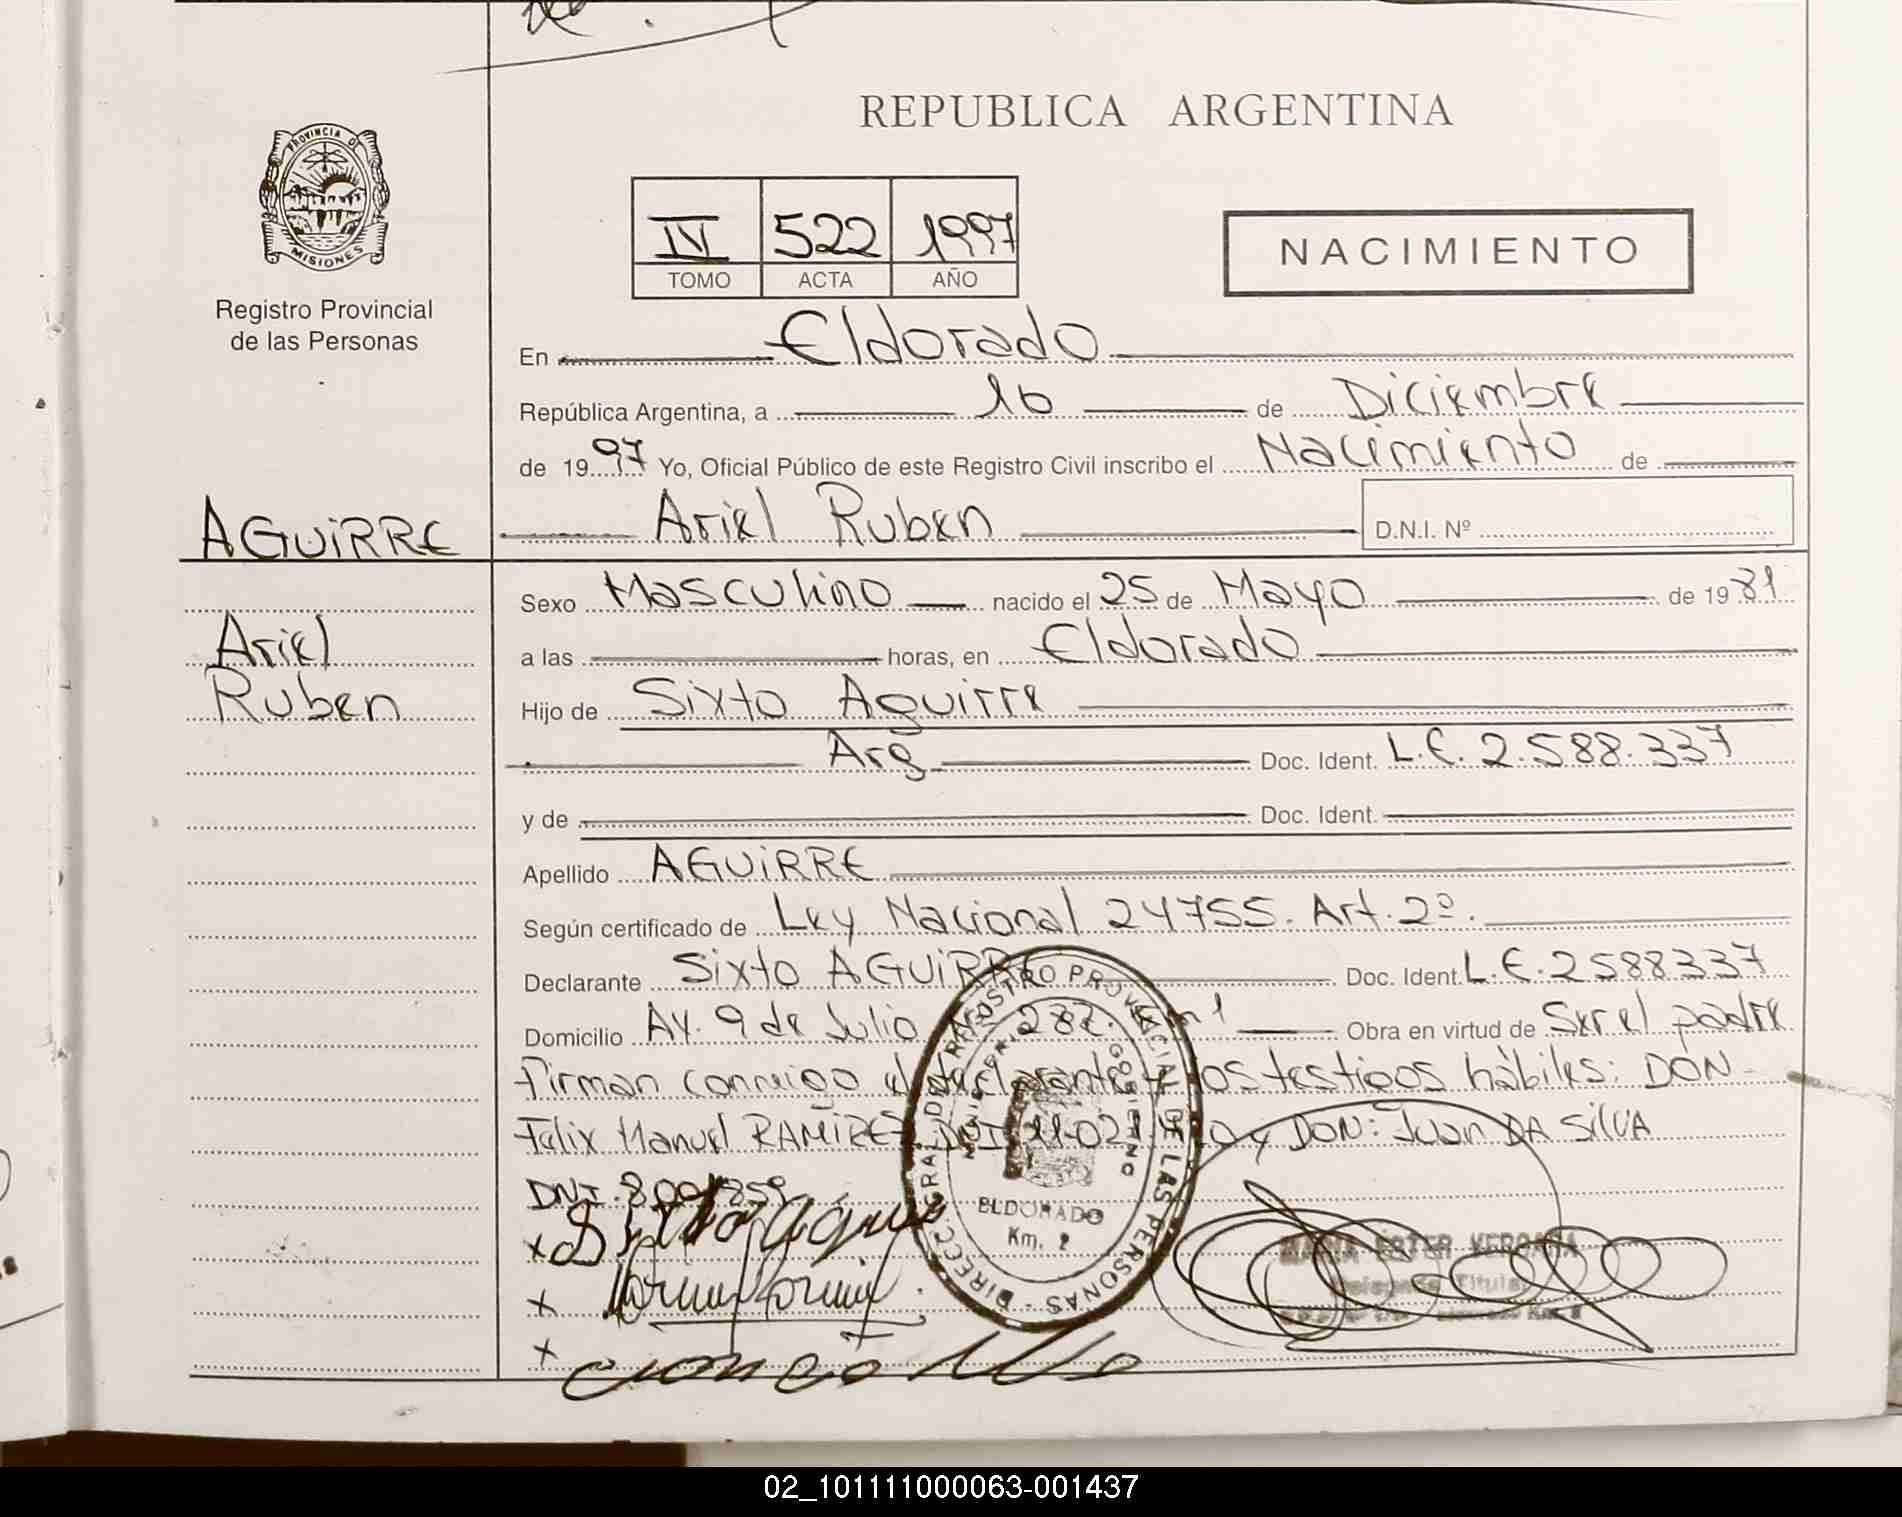 PROVINCIA DE
MISIONES
Registro Provincial
de las Personas
AGUiRRE
Ariel
Ruben
REPUBLICA ARGENTINA
IV 522 1997
TOMO ACTA AÑO
NACIMIENTO
En Eldorado
República Argentina, a 16 de Diciembre
de 1997 Yo, Oficial Público de este Registro Civil inscribo el Nacimiento de
Ariel Ruben D.N.I. Nº
Sexo Masculino nacido el 25 de Mayo de 1981
a las horas, en Eldorado
Hijo de Sixto Aguirre
Arg Doc. Ident. L.E. 2.588.337
y de Doc. Ident.
Apellido AGUiRRE
Según certificado de Ley Nacional 24755. Art. 2º.
Declarante Sixto AGUiRRE Doc. Ident. L.E. 2588337
Domicilio Av. 9 de Julio 282. Km 1 Obra en virtud de Ser el padre
Firman conmigo el declarante y los testigos hábiles: DON
Felix Manuel RAMIREZ DNI 11.021. y DON: Juan DA SiLVA
DNI.
DIRECC. GRAL. DEL REGISTRO PROVINCIAL DE LAS PERSONAS
ELDORADO
Km. 2
MARIA ESTER VERGARA
Delegada Titular
x
x
x
02_101111000063-001437